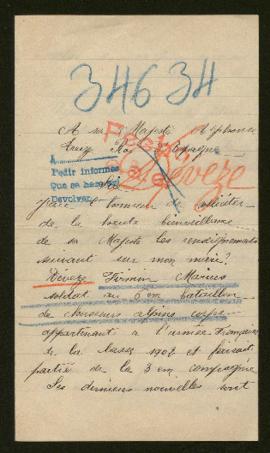 34634
A sa Majesté Alphonse
Roi Espagne
Pedir informes
que se hacen
Devolver
Devèze
j'ai l'honneur de solliciter
de la haute bienveillance
de sa Majesté les renseignements
suivant sur mon mari
Devèze Firmin Marius
soldat au 6 em bataillon
de chasseurs alpins corps
appartenant à l'armée Française
de la classe 1902 et faisait
partie de la 3 em compagnie
Ses derniers nouvelles sont